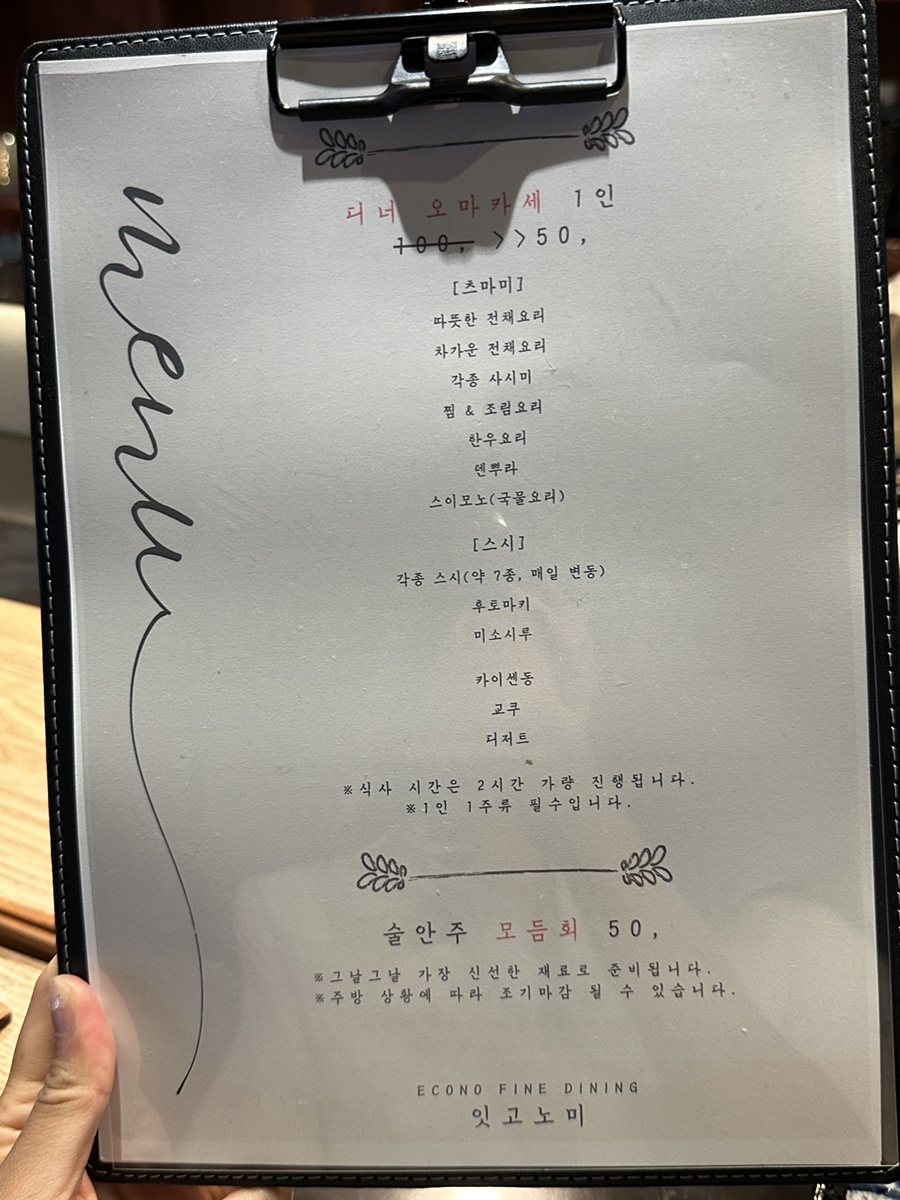 menu
디너 오마카세 1인
100, >>50,
[츠마미]
따뜻한 전채요리
차가운 전채요리
각종 사시미
찜 & 조림요리
한우요리
덴뿌라
스이모노(국물요리)
[스시]
각종 스시(약 7종, 매일 변동)
후토마키
미소시루
카이센동
교쿠
디저트
※식사 시간은 2시간 가량 진행됩니다.
※1인 1주류 필수입니다.
술안주 모듬회 50,
※그날그날 가장 신선한 재료로 준비됩니다.
※주방 상황에 따라 조기마감 될 수 있습니다.
ECONO FINE DINING
잇고노미